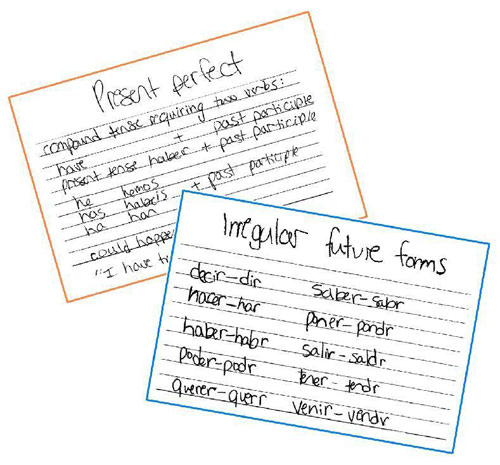 Present perfect
compound tense requiring two verbs:
have + past participle
present tense haber + past participle
he hemos
has habeis + past participle
ha han
could
"I have
Irregular future forms
decir-dir saber-sabr
hacer-har poner-pondr
haber-habr salir-saldr
poder-podr tener-tendr
querer-querr venir-vendr